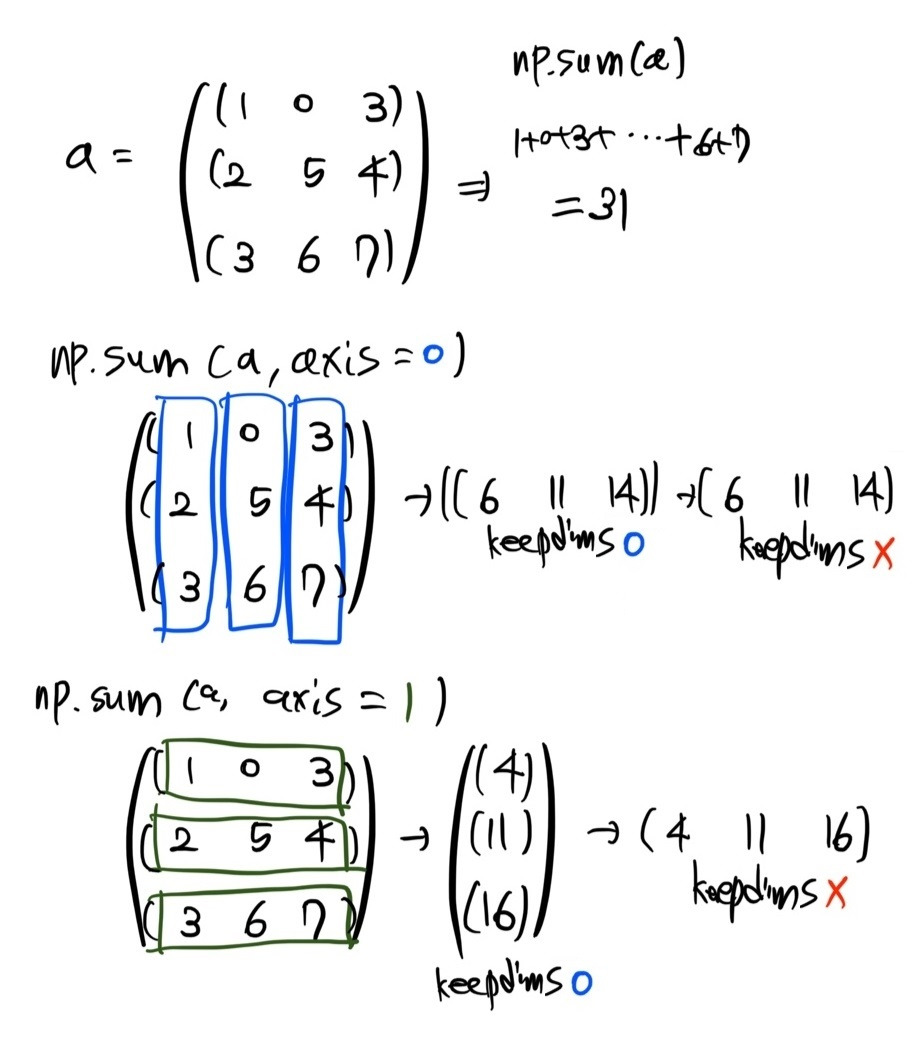 np.sum(a)
a = ((1 0 3)
(2 5 4)
(3 6 7)) ⇒
1+0+3+ ⋯ +6+7
= 31
np.sum (a, axis = 0)
((1 0 3)
(2 5 4)
(3 6 7)) → ((6 11 14)) → (6 11 14)
keepdims O keepdims X
np.sum (a, axis = 1)
((1 0 3)
(2 5 4)
(3 6 7)) → ((4)
(11)
(16)) → (4 11 16)
keepdims X
keepdims O